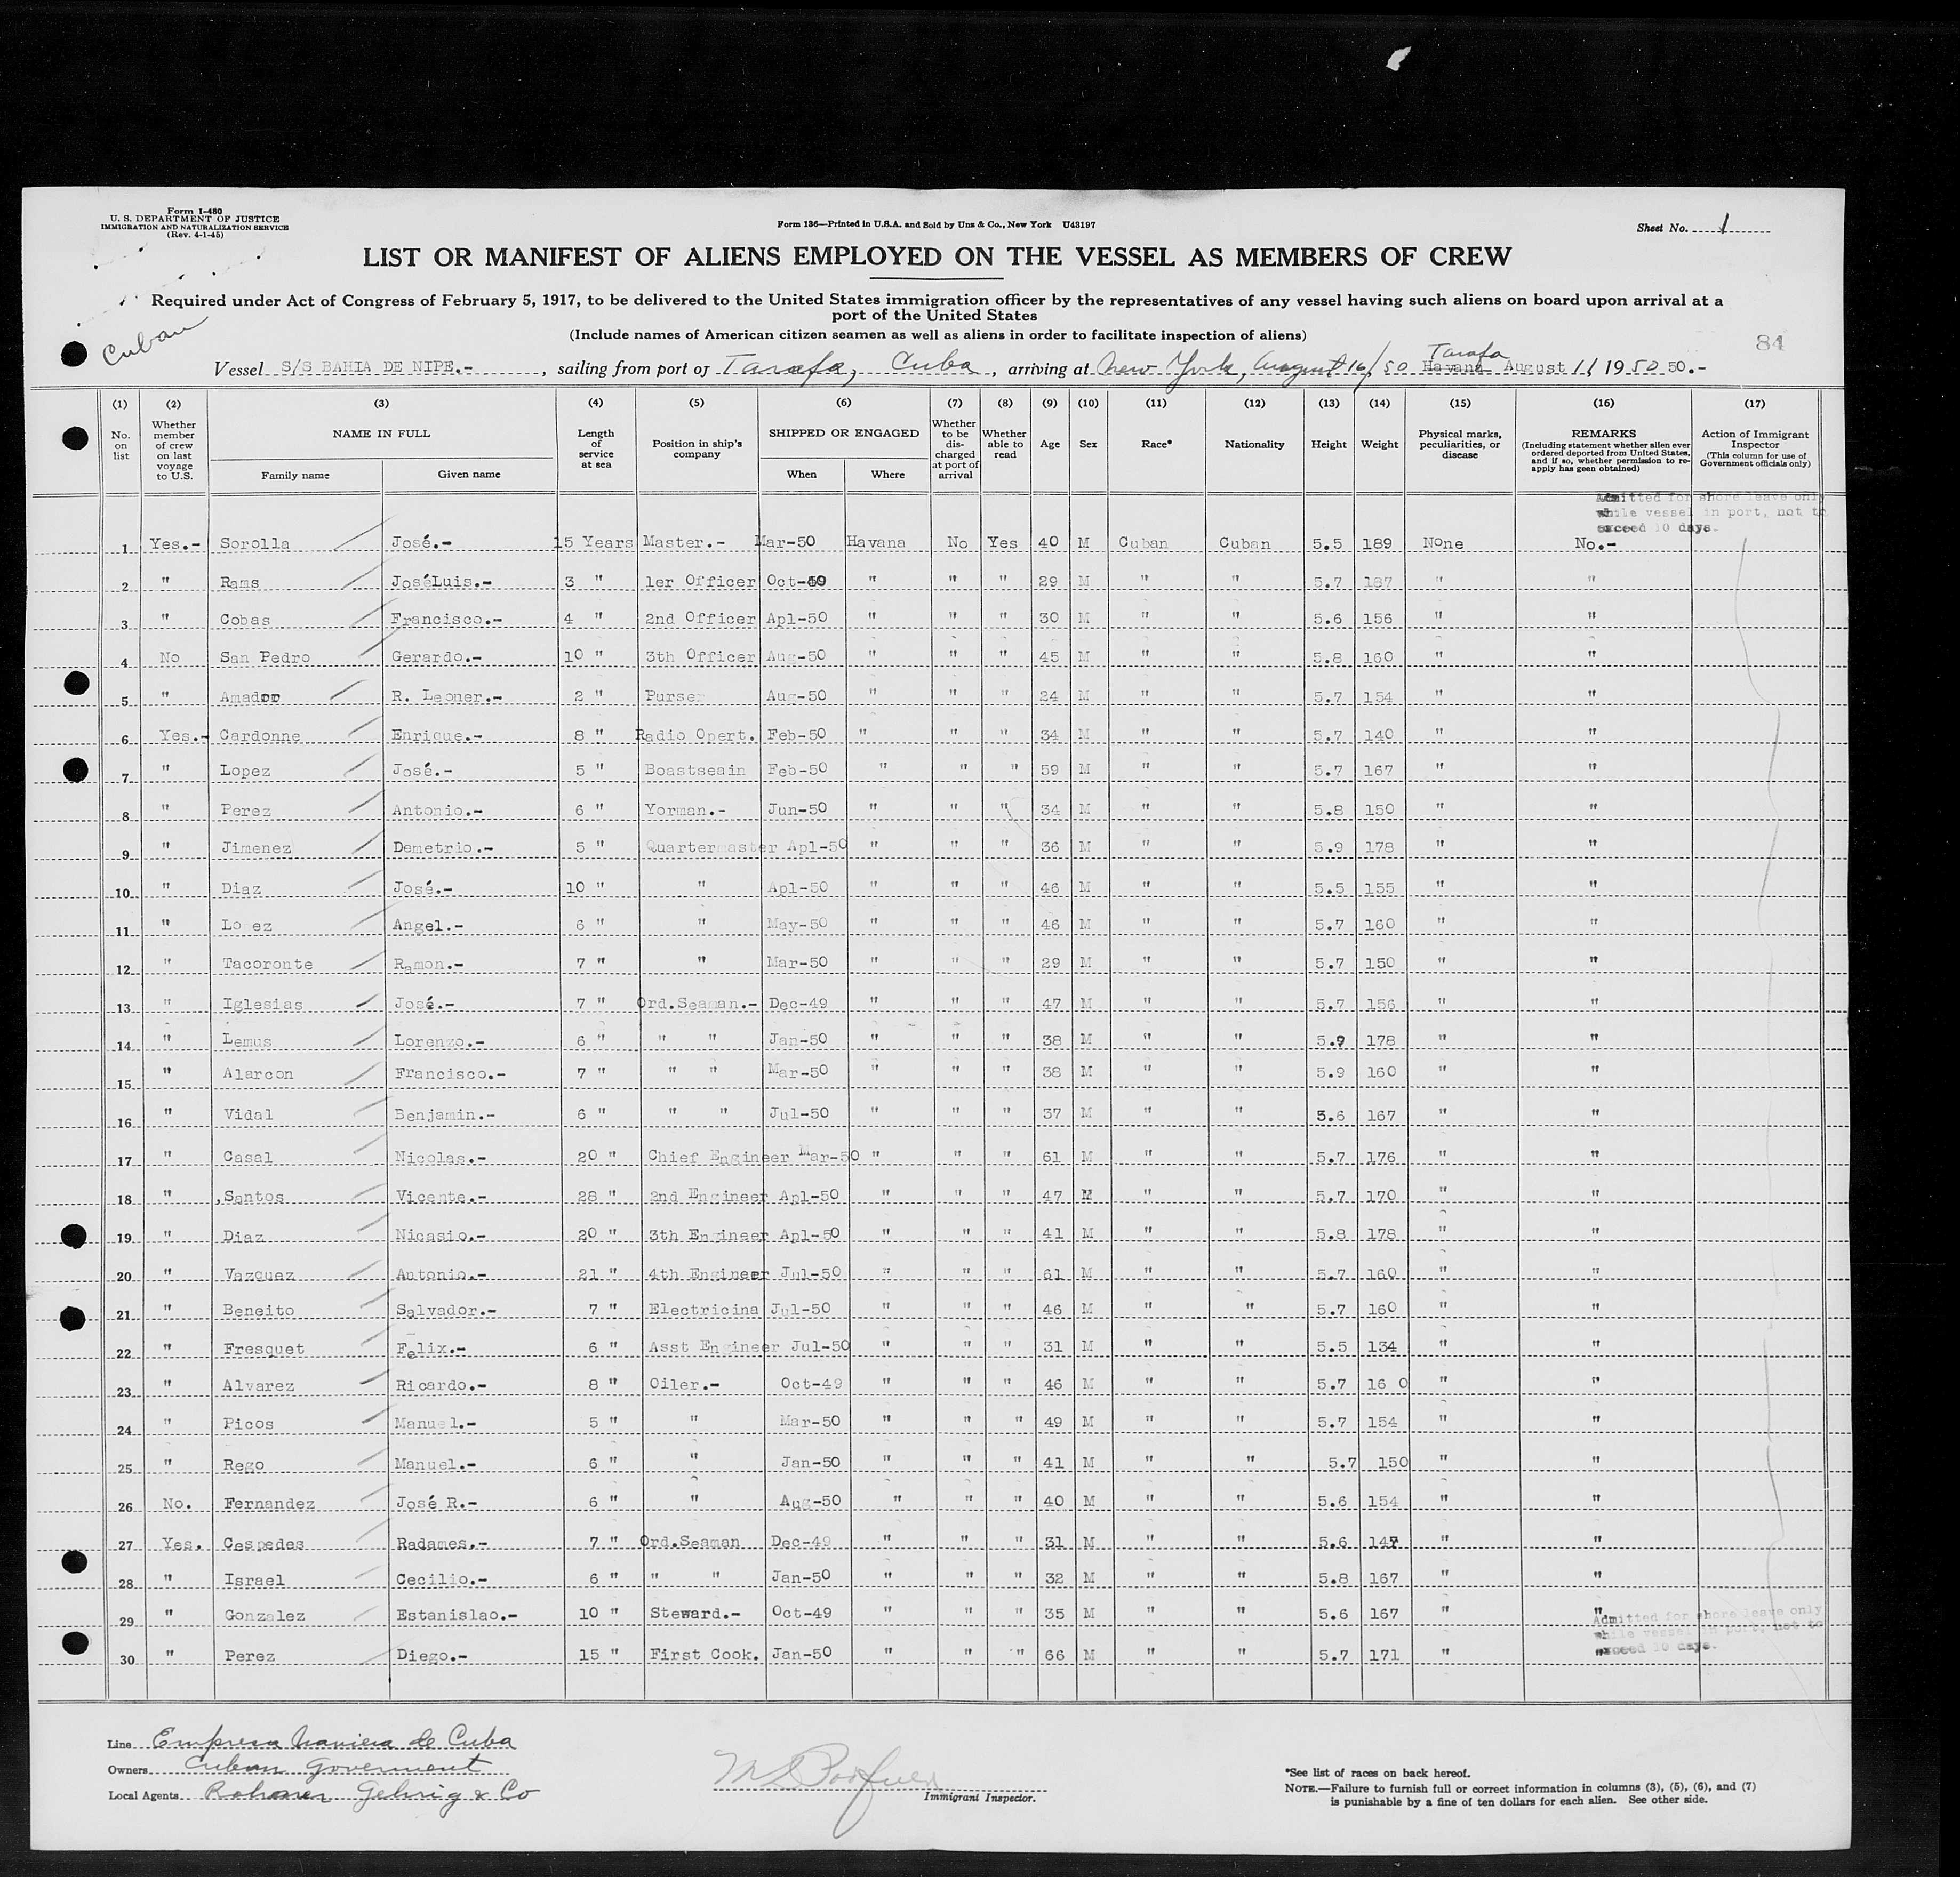 Form I-480
U. S. DEPARTMENT OF JUSTICE
IMMIGRATION AND NATURALIZATION SERVICE
(Rev. 4-1-45)
Form 136—Printed in U.S.A. and Sold by Uns & Co., New York U43197
Sheet No. 1
LIST OR MANIFEST OF ALIENS EMPLOYED ON THE VESSEL AS MEMBERS OF CREW
Required under Act of Congress of February 5, 1917, to be delivered to the United States immigration officer by the representatives of any vessel having such aliens on board upon arrival at a
port of the United States
(Include names of American citizen seamen as well as aliens in order to facilitate inspection of aliens)
84
Cuban
Tarafa
Vessel S/S BAHIA DE NIPE.- , sailing from port of Tarafa, Cuba , arriving at New York, August 16/50 Havana August 11 1950 50.-
(1) (2) (3) (4) (5) (6) (7) (8) (9) (10) (11) (12) (13) (14) (15) (16) (17)
No. on list
Whether member of crew on last voyage to U.S.
NAME IN FULL
Family name
Given name
Length of service at sea
Position in ship's company
SHIPPED OR ENGAGED
When
Where
Whether to be discharged at port of arrival
Whether able to read
Age
Sex
Race*
Nationality
Height
Weight
Physical marks, peculiarities, or disease
REMARKS
(Including statement whether alien ever ordered deported from United States, and if so, whether permission to reapply has geen obtained)
Action of Immigrant Inspector
(This column for use of Government officials only)
Admitted for shore leave only
while vessel in port, not to
exceed 10 days.
1 Yes.- Sorolla José.- 15 Years Master.- Mar-50 Havana No Yes 40 M Cuban Cuban 5.5 189 None No.-
2 " Rams JoséLuis.- 3 " 1er Officer Oct-49 " " " 29 M " " 5.7 187 " "
3 " Cobas Francisco.- 4 " 2nd Officer Apl-50 " " " 30 M " " 5.6 156 " "
4 No San Pedro Gerardo.- 10 " 3th Officer Aug-50 " " " 45 M " " 5.8 160 " "
5 " Amador R. Leoner.- 2 " Purser Aug-50 " " " 24 M " " 5.7 154 " "
6 Yes.- Cardonne Enrique.- 8 " Radio Opert. Feb-50 " " " 34 M " " 5.7 140 " "
7 " Lopez José.- 5 " Boastseain Feb-50 " " " 59 M " " 5.7 167 " "
8 " Perez Antonio.- 6 " Yorman.- Jun-50 " " " 34 M " " 5.8 150 " "
9 " Jimenez Demetrio.- 5 " Quartermaster Apl-50 " " " 36 M " " 5.9 178 " "
10 " Diaz José.- 10 " " Apl-50 " " " 46 M " " 5.5 155 " "
11 " Lopez Angel.- 6 " " May-50 " " " 46 M " " 5.7 160 " "
12 " Tacoronte Ramon.- 7 " " Mar-50 " " " 29 M " " 5.7 150 " "
13 " Iglesias José.- 7 " Ord.Seaman.- Dec-49 " " " 47 M " " 5.7 156 " "
14 " Lemus Lorenzo.- 6 " " " Jan-50 " " " 38 M " " 5.9 178 " "
15 " Alarcon Francisco.- 7 " " " Mar-50 " " " 38 M " " 5.9 160 " "
16 " Vidal Benjamin.- 6 " " " Jul-50 " " " 37 M " " 5.6 167 " "
17 " Casal Nicolas.- 20 " Chief Engineer Mar-50 " " " 61 M " " 5.7 176 " "
18 " Santos Vicente.- 28 " 2nd Engineer Apl-50 " " " 47 M " " 5.7 170 " "
19 " Diaz Nicasio.- 20 " 3th Engineer Apl-50 " " " 41 M " " 5.8 178 " "
20 " Vazquez Antonio.- 21 " 4th Engineer Jul-50 " " " 61 M " " 5.7 160 " "
21 " Beneito Salvador.- 7 " Electricina Jul-50 " " " 46 M " " 5.7 160 " "
22 " Fresquet Felix.- 6 " Asst Engineer Jul-50 " " " 31 M " " 5.5 134 " "
23 " Alvarez Ricardo.- 8 " Oiler.- Oct-49 " " " 46 M " " 5.7 16 0 " "
24 " Picos Manuel.- 5 " " Mar-50 " " " 49 M " " 5.7 154 " "
25 " Rego Manuel.- 6 " " Jan-50 " " " 41 M " " 5.7 150 " "
26 No. Fernandez José R.- 6 " " Aug-50 " " " 40 M " " 5.6 154 " "
27 Yes. Cespedes Radames.- 7 " Ord.Seaman Dec-49 " " " 31 M " " 5.6 147 " "
28 " Israel Cecilio.- 6 " " " Jan-50 " " " 32 M " " 5.8 167 " "
29 " Gonzalez Estanislao.- 10 " Steward.- Oct-49 " " " 35 M " " 5.6 167 " "
30 " Perez Diego.- 15 " First Cook. Jan-50 " " " 66 M " " 5.7 171 " "
Admitted for shore leave only
while vessel in port, not to
exceed 10 days.
Line Empresa Naviera de Cuba
Owners Cuban Goverment
Local Agents Rohner Gehrig & Co
Immigrant Inspector.
*See list of races on back hereof.
NOTE.—Failure to furnish full or correct information in columns (3), (5), (6), and (7)
is punishable by a fine of ten dollars for each alien. See other side.